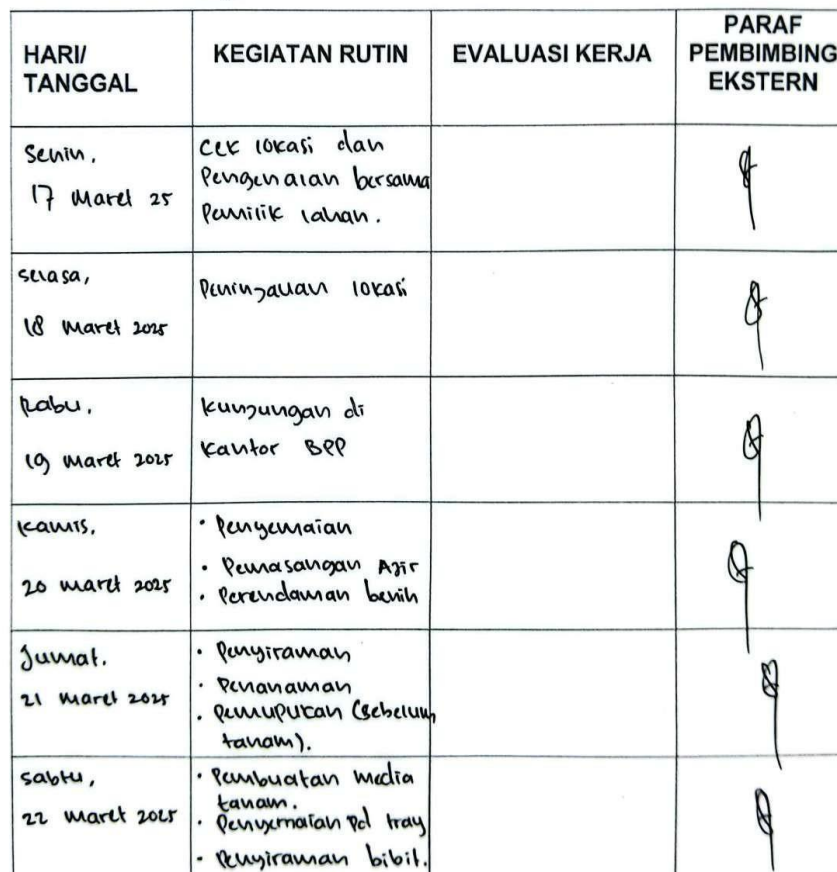 HARI/
TANGGAL
KEGIATAN RUTIN
EVALUASI KERJA
PARAF
PEMBIMBING
EKSTERN
Senin,
17 Maret 25
Cek lokasi dan
Pengenalan bersama
Pemilik lahan.
Selasa,
18 Maret 2025
Peninjauan lokasi
Rabu,
19 Maret 2025
Kunjungan di
Kantor BPP
Kamis,
20 Maret 2025
• Penyemaian
• Pemasangan Ajir
• Perendaman benih
Jumat.
21 Maret 2025
• Penyiraman
• Penanaman
• Pemupukan (Sebelum
tanam).
Sabtu,
22 Maret 2025
• Pembuatan media
tanam.
• Penyemaian pd tray
• Penyiraman bibit.